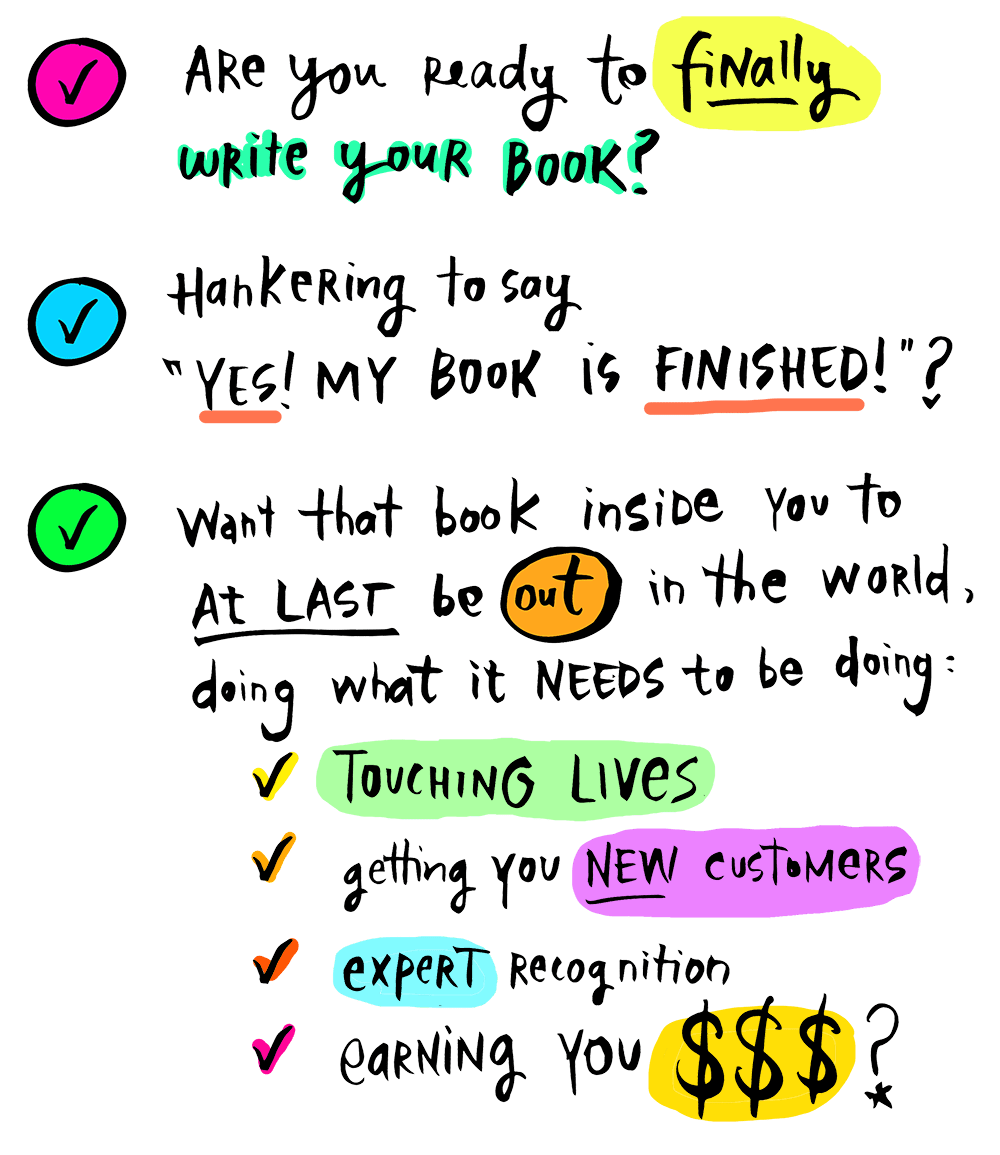 ARe you Ready to finally
write your BOOK?
HankeRing to say
"YES! MY BOOK is FINISHED!"?
Want that book insiDe You to
At LAST be out in the WORLD,
doing what it NEEDS to be doing:
TOUCHING LIVes
getting you NEW CUSTOMeRS
expeRT Recognition
eaRNiNg YOU $$$?